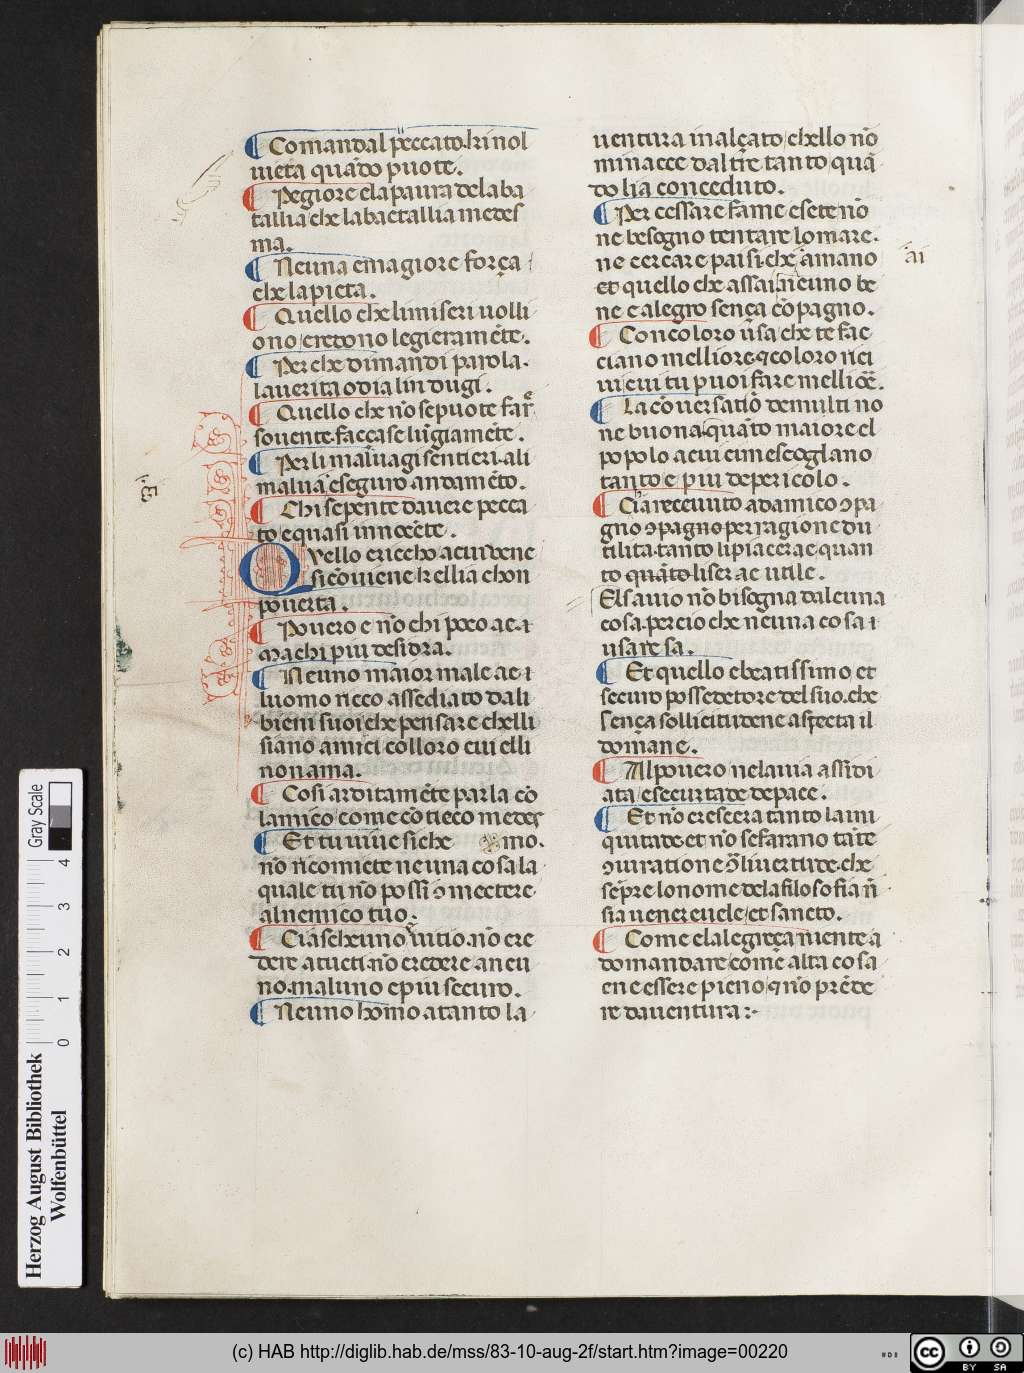 Comandal peccato.ki nol
uieta quādo puote.
Pegiore ela paura dela ba
tallia che la battallia medes
ma.
Neuna e magiore força
che la pieta.
Quello che li miseri uolli
ono credono legieramēte.
Perche dimandi parola.
la uerita odia lindugi.
Quello che nō se puote far
souente.facca se lūgiamēte.
Per li maluagi sentieri.ali
malua e seguro andamēto.
Chi se pente dauere pecca
to e quasi innocēte.
Quello e riccho a cui bene
si cōuiene kellia chon
pouerta.
Pouero e nō chi poco ae.
Ma chi piu desidra.
Neuno maior male ae.
luomo ricco assediato dali
bieni suoi che pensare chelli
siano amici colloro cui elli
non ama.
Cosi arditamēte parla cō
lamico come cō tieco medes
Et tu uiue si che mo.
nō ricomiete neuna cosa la
quale tu nō possi ꝯmectere
al nemico tuo.
Ciascheuno e uitio.nō cre
dere a tucti.nō credere a neu
no.maluno e piu securo.
Neuno homo a tanto la
uentura inalçato chello nō
minacce daltre tanto quā
do lia conceduto.
Per cessare fame e sete nō
ne besogno tentare lo mare.
ne cercare paisi che amano
ai
et quello che assai neuno be
ne e alegro sença cōpagno.
Con coloro usa che te fac
ciano melliore. coloro rici
ui cui tu puoi fare melliore.
La cōuersatiō de multi no
ne buona.quāto maiore el
popolo a cui cimescoglano
tanto e piu de pericolo.
Cia receuuto adamico ꝯpa
gno ꝯpagno per ragione du
tilita.tanto li piacerae quan
to quāto liserae utile.
El sauio nō bisogna dalcuna
cosa.percio che neuna cosa i
usare sa.
Et quello e beatissimo et
securo possedetore del suo.che
sença sollicitudene aspecta il
domane.
Al pouero ne la uia assidi
ata e securtade de pace.
Et nō crescera tanto la ini
quitade.et nō se farano tāte
ꝯiuratione ꝯ li uertude.che
sēpre lo nome dela filosofia n̄
sia uenereuele et sancto.
Come el alegreça niente a
domandare.come alta cosa
ene essere pieno nō prēde
re da uentura:
Gray Scale
0 1 2 3 4
Herzog August Bibliothek
Wolfenbüttel
(c) HAB http://diglib.hab.de/mss/83-10-aug-2f/start.htm?image=00220
cc BY SA